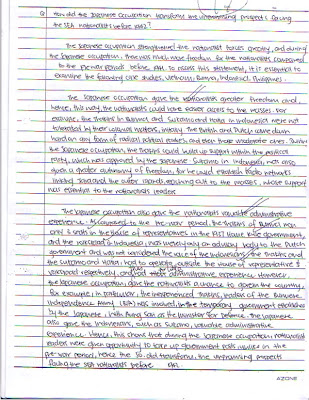 Q How did the Japanese Occupation transform the unpromising prospects facing
the SEA nationalists before 1942?
The Japanese occupation strengthened the nationalist forces greatly, and during
the Japanese occupation, there was much more freedom for the nationalists compared
to the pre-war periods before 1942. To assess this statement, it is essential to
examine the following case studies, Vietnam, Burma, Indonesia, Philippines.
The Japanese occupation gave the nationalists greater freedom and
hence, this way, the nationalists could have easier access to the masses. For
example, the thakins in Burma and Sukarno and Hatta in Indonesia were not
tolerated by their colonial masters, initially. The British and Dutch came down
hard on any form of radical political parties and even those moderate ones. During
the Japanese occupation, the thakins could build up support within the political
party, which was approved by the Japanese. Sukarno in Indonesia, was also
given a greater autonomy of freedom, for he used
and the outer islands, reaching out to the masses, whose support
was essential to the nationalist leaders
The Japanese occupation also gave the nationalists valuable administrative
experience. As compared to the pre-war period, the thakins of Burma had
only 3 seats in the House of Representatives in the 1937 House of government,
and the Volksraad in Indonesia, was merely only an advisory body to the Dutch
government and was not considered the voice of the Indonesians. The thakins and
the Sukarno and Hatta, had to operate outside the House of representative &
Volksraad respectively, and had little administrative experience. However,
the Japanese occupation gave the nationalists a chance to govern the country,
for example, in particular, the inexperienced thakins, leaders of the Burmese
Independence Army (BIA) was in the temporary government established
by the Japanese, with Aung San as the Minister for Defence. The Japanese
also gave the Indonesians, such as Sukarno, valuable administrative
experience. Hence, this shows that during the Japanese occupation, nationalist
leaders were given opportunity to take up government posts unlike in the
pre-war period, hence the JO did transform the unpromising prospects
facing the SEA nationalists before 1942.
AZONE